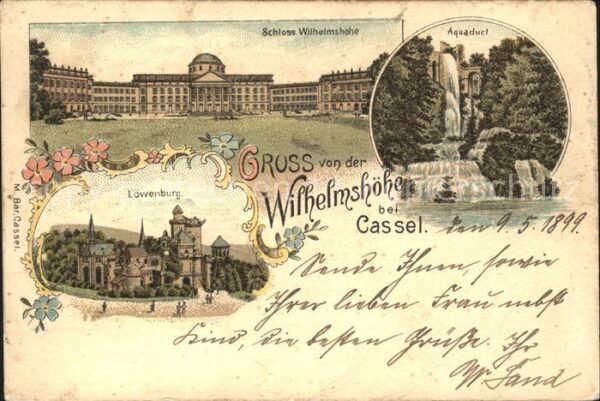 Schloss Wilhelmshöhe
Aquaduct
GRUSS von der
Wilhelmshöhe
bei
Cassel.
Löwenburg
M. Bär, Cassel.
den 9. 5. 1899.
Sende Ihnen, sowie
Ihrer lieben Frau nebst
Kind, die besten Grüße. Ihr
W. Sand